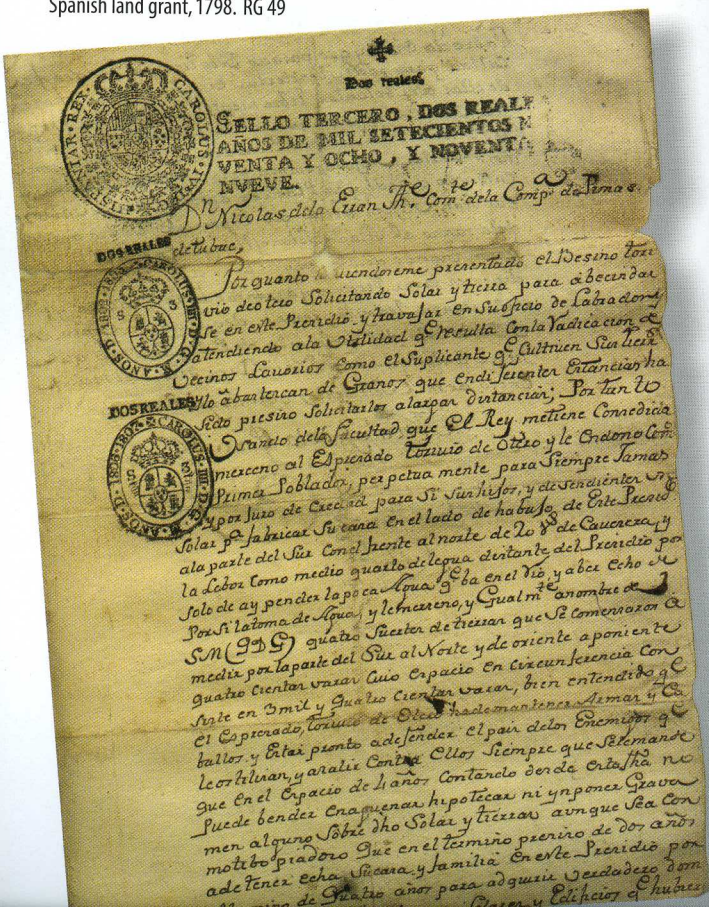 Spanish land grant, 1798. RG 49
Dos reales.
SELLO TERCERO, DOS REALE
AÑOS DE MIL SETECIENTOS N
VENTA Y OCHO, Y NOVENTA
NVEVE.
HISPANIAR. REX CAROLUS IV
Dn Nicolas dela Erran The Comte dela Compa de Pimas
de tubac,
DOS REALES
CAROLUS IIII D. G.
S 3
Por quanto viendoreme presentado el Besino tori
vio deotero Solicitando Solar y tierra para abecindar
se en este Presidio, y travajar en su oficio de Labrador, y
atendiendo ala Utilidad qe resulta Con la Vadicacion de
Vecinos Lavorios Como el Suplicante qe Cultiven Sus tierr
y lo abastescan de Granos que en diferentes Estancias ha
DOS REALES
Sido presiso Solicitarlos alargas distancias; Por tanto
Usando dela facultad que El Rey me tiene Consedida
CAROLUS IIII D. G.
merceno al Espresado toriuio de Otero y le Endono Com
Primer Poblador, perpetua mente para Siempre Jamas
y por Juro de Eredad para Si Sus hijos, y desendientes un
Solar pa fabricar Su cara en el lado de habajo, de Este Presid
ala parte del Sur Con el frente al norte de 20 vs de Cavecera, y
la Lebor Como medio quarto de legua distante, del Presidio por
Solo de ay pender la poca Agua qe ba en el Rio, y aber echo el
Por Si la toma de Agua, y le merceno, y Gualmte a nombre de
SM (QDG) quatro Suertes de tierras que Se comensaron a
medir por la parte del Sur al Norte y de oriente a poniente
quatro Cientas varas Cuio espacio en Circunferencia Con
siste en 3 mil y quatro Cientas varas, bien entendido qe
El Espresado, toriuio de Otero ha de mantener Armas y Ca
ballos, y Estar pronto a defender el pais delos Enemigos qe
le ostilisan, y a salir Contra Ellos Siempre que Se le mande
que En el Espacio de 4 años Contando desde esta fha no
Puede bender Enagenar hipotecar ni ynponer Grava
men alguno Sobre dho Solar y tierras aunque Sea Con
motibo piadoso Que en el termino presiso de dos años
a de tener echa Su cara, y familia En este Presidio por
de Quatro años para adquirir verdadero dom
Solares y Edificios qe hubier